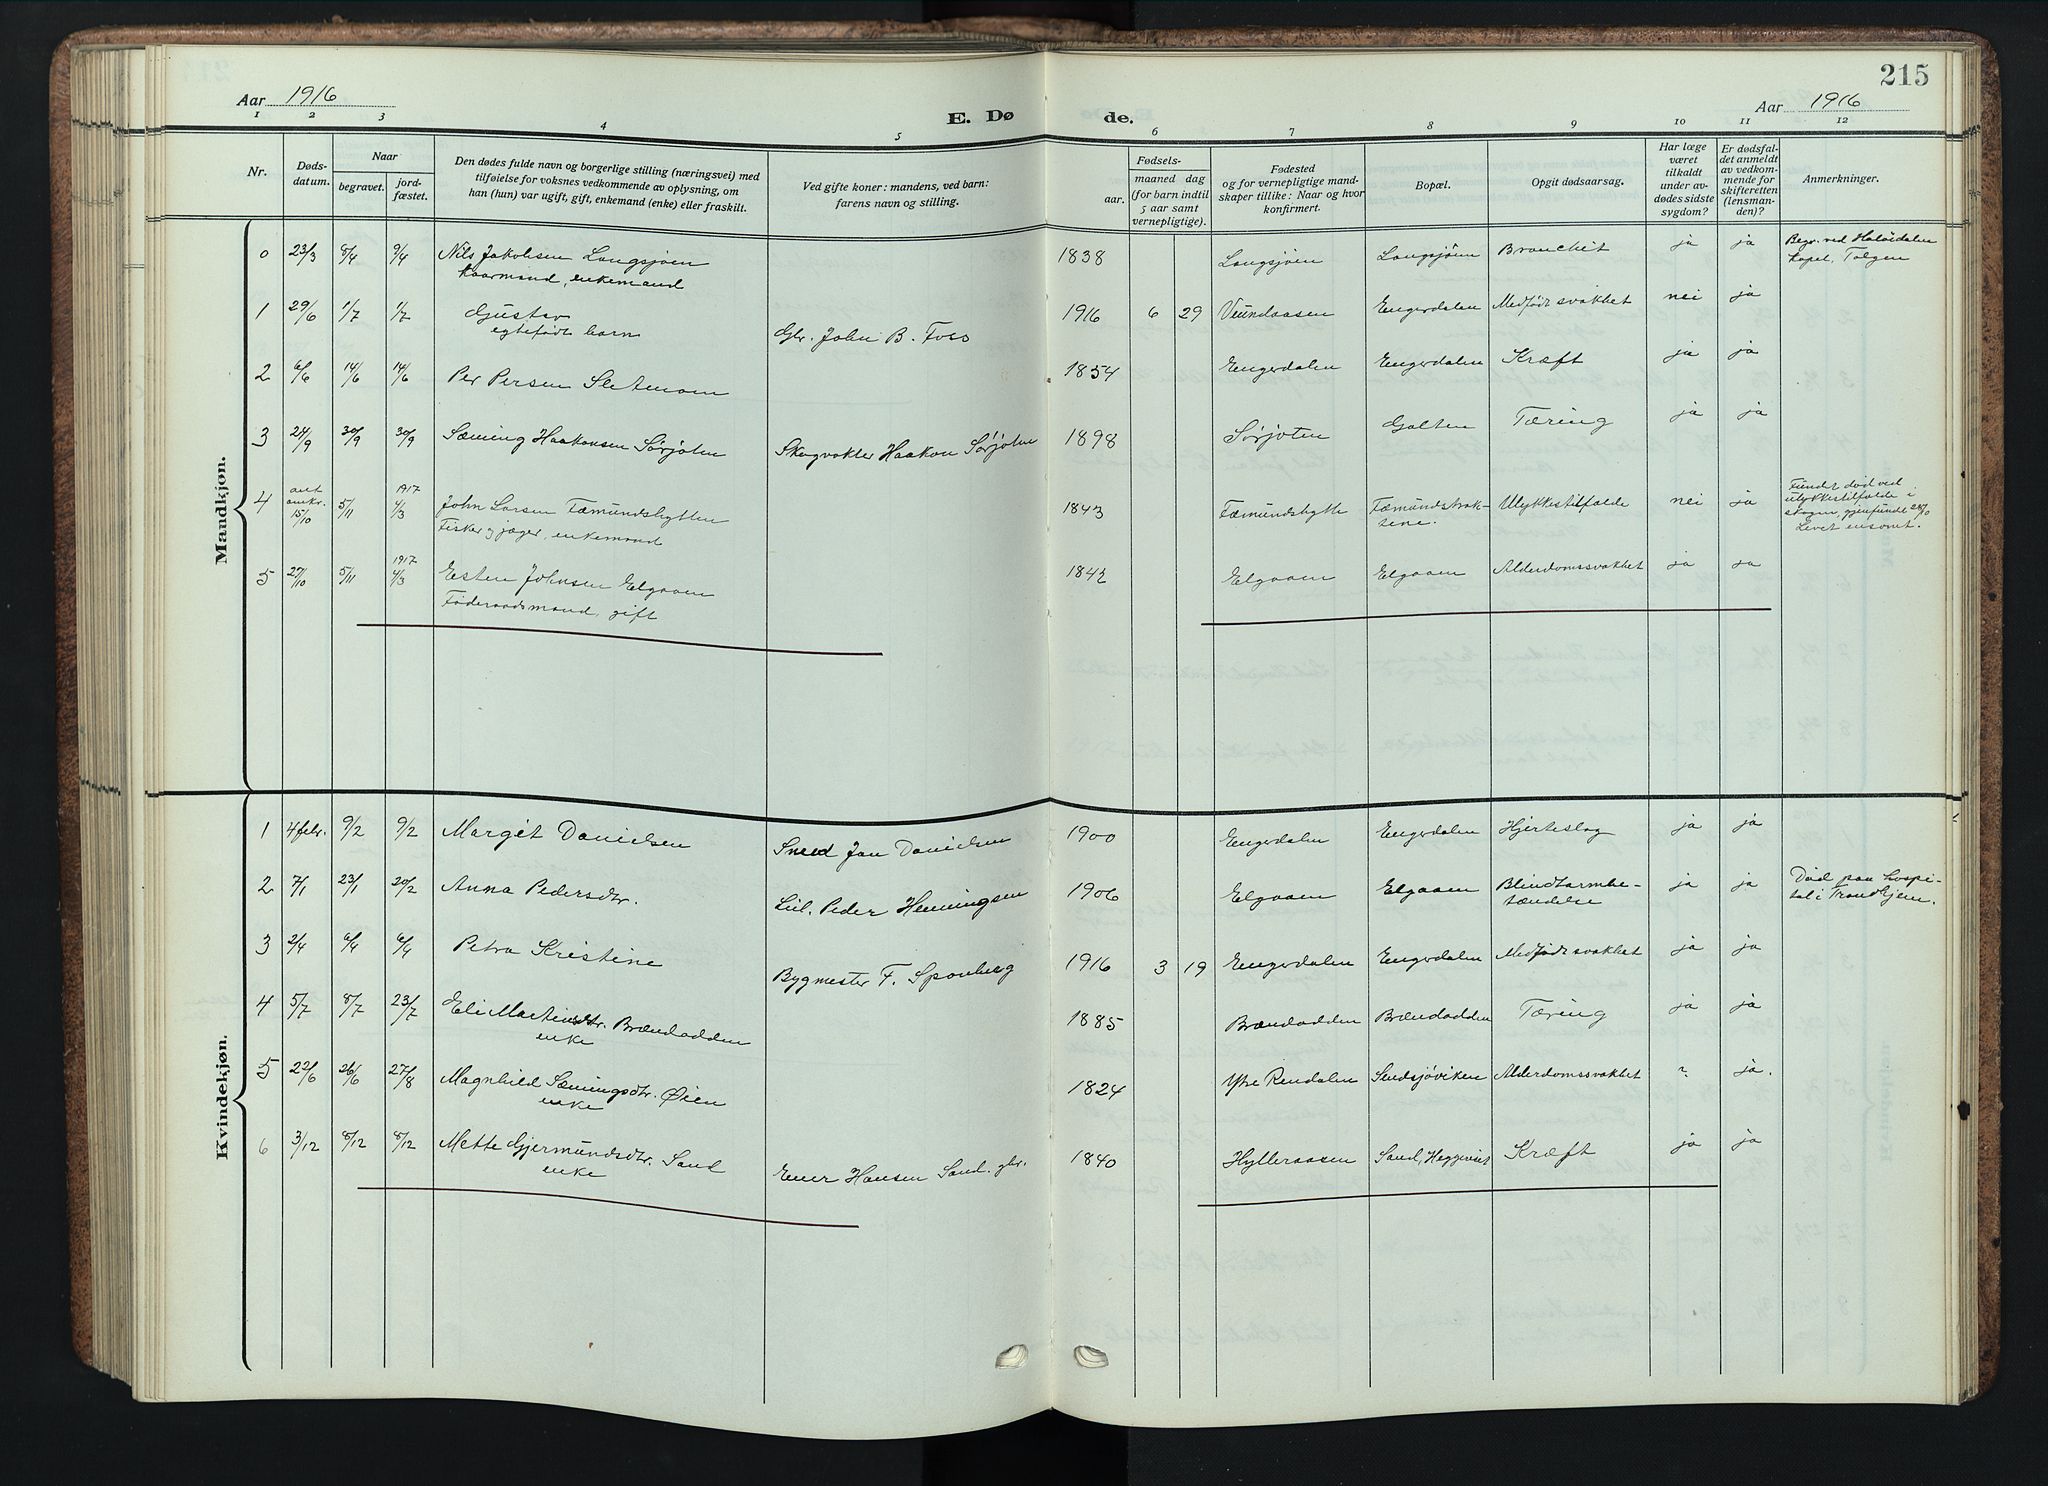 Aar 1916
E. Dø
de.
215
Aar 1916
1 2 3 4 5 6 7 8 9 10 11 12
Nr.
Døds-
datum.
Naar
begravet.
jord-
fæstet.
Den dødes fulde navn og borgerlige stilling (næringsvei) med
tilføielse for voksnes vedkommende av oplysning, om
han (hun) var ugift, gift, enkemand (enke) eller fraskilt.
Ved gifte koner: mandens, ved barn:
farens navn og stilling.
Fødsels-
aar.
maaned dag
(for barn indtil
5 aar samt
vernepligtige).
Fødested
og for vernepligtige mand-
skaper tillike: Naar og hvor
konfirmert.
Bopæl.
Opgit dødsaarsag.
Har læge
været
tilkaldt
under av-
dødes sidste
sygdom?
Er dødsfal-
det anmeldt
av vedkom-
mende for
skifteretten
(lensman-
den)?
Anmerkninger.
Mandkjøn.
0 23/3 8/4 9/4 Nils Jakobsen Langsjøen 1838 Langsjøen Langsjøen Bronchit ja ja Begr. ved Holøidalen
kaarmand, enkemand kapel, Tolgen
1 29/6 1/7 1/7 Gustav Gbr. John B. Foss 1916 6 29 Veundaasen Engerdalen Medfødt svakhet nei ja
egtefødt barn
2 6/6 14/6 14/6 Per Persen Sletmoen 1854 Engerdalen Engerdalen Kræft ja ja
3 24/9 30/9 30/9 Sæming Haakonsen Sørjoten Skogvokter Haakon Sørjoten 1898 Sørjoten Galten Tæring ja ja
4 ant. omkr. 15/10 5/11 1917 4/3 John Larsen Fæmundshytten 1843 Fæmundshytte Fæmundstrak-
sene. Ulykkestilfælde nei ja Fundet død ved
Fisker og jæger, enkemand ulykkestilfælde i
skogen, gjenfundet 28/10
Levet ensomt.
5 27/10 5/11 1917 4/3 Esten Johnsen Elgaaen 1842 Elgaaen Elgaaen Alderdomssvakhet ja ja
Føderaadsmand, gift
Kvindekjøn.
1 4 febr. 9/2 9/2 Margit Danielsen Smed Jan Danielsen 1900 Engerdalen Engerdalen Hjerteslag ja ja
2 7/1 23/1 20/2 Anna Pedersdtr. Peder Henningsen 1906 Elgaaen Elgaaen Blindtarmbe-
tændelse ja ja Død paa hospi-
tal i Trondhjem.
3 2/4 6/4 6/4 Petra Kristine Bygmester F. Sponberg 1916 3 19 Engerdalen Engerdalen Medfødt svakhet ja ja
4 5/7 8/7 23/7 Eli Martinsdtr. Brændodden 1885 Brændodden Brændodden Tæring ja ja
enke
5 22/6 26/6 27/8 Magnhild Sæmingsdtr. Øien 1824 Ytre Rendalen Sendsjøviken Alderdomssvakhet ? ja.
enke
6 3/12 8/12 8/12 Mette Gjermundsdtr. Sand Hansen Sand. gbr. 1840 Hylleraasen Sand, Heggeriset Kræft ja ja
enke